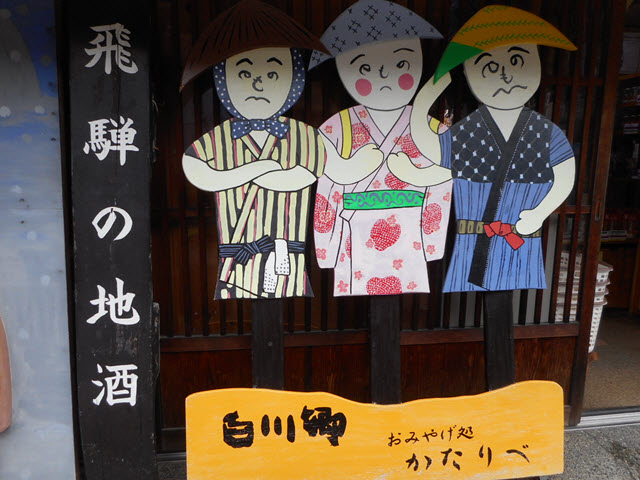 飛騨の地酒
白川郷
おみやげ処
かたりべ